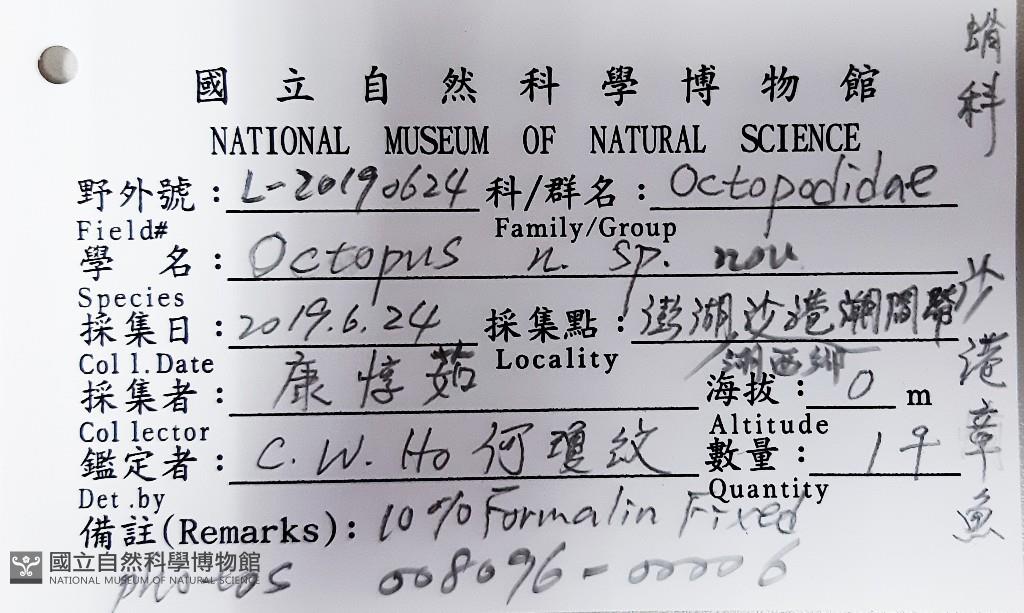 國立自然科學博物館
NATIONAL MUSEUM OF NATURAL SCIENCE
野外號：L-20190624 科/群名：Octopodidae
Field# Family/Group
學 名：Octopus n. sp. nov
Species
採集日：2019.6.24 採集點：澎湖沙港潮間帶
湖西鄉
Coll.Date Locality
採集者：康惇茹 海拔：0 m
Collector Altitude
鑑定者：C.W.Ho 何瓊紋 數量：1♀
Det.by Quantity
備註(Remarks)：10% Formalin Fixed
008096-00006
蛸科
沙港章魚
國立自然科學博物館
NATIONAL MUSEUM OF NATURAL SCIENCE